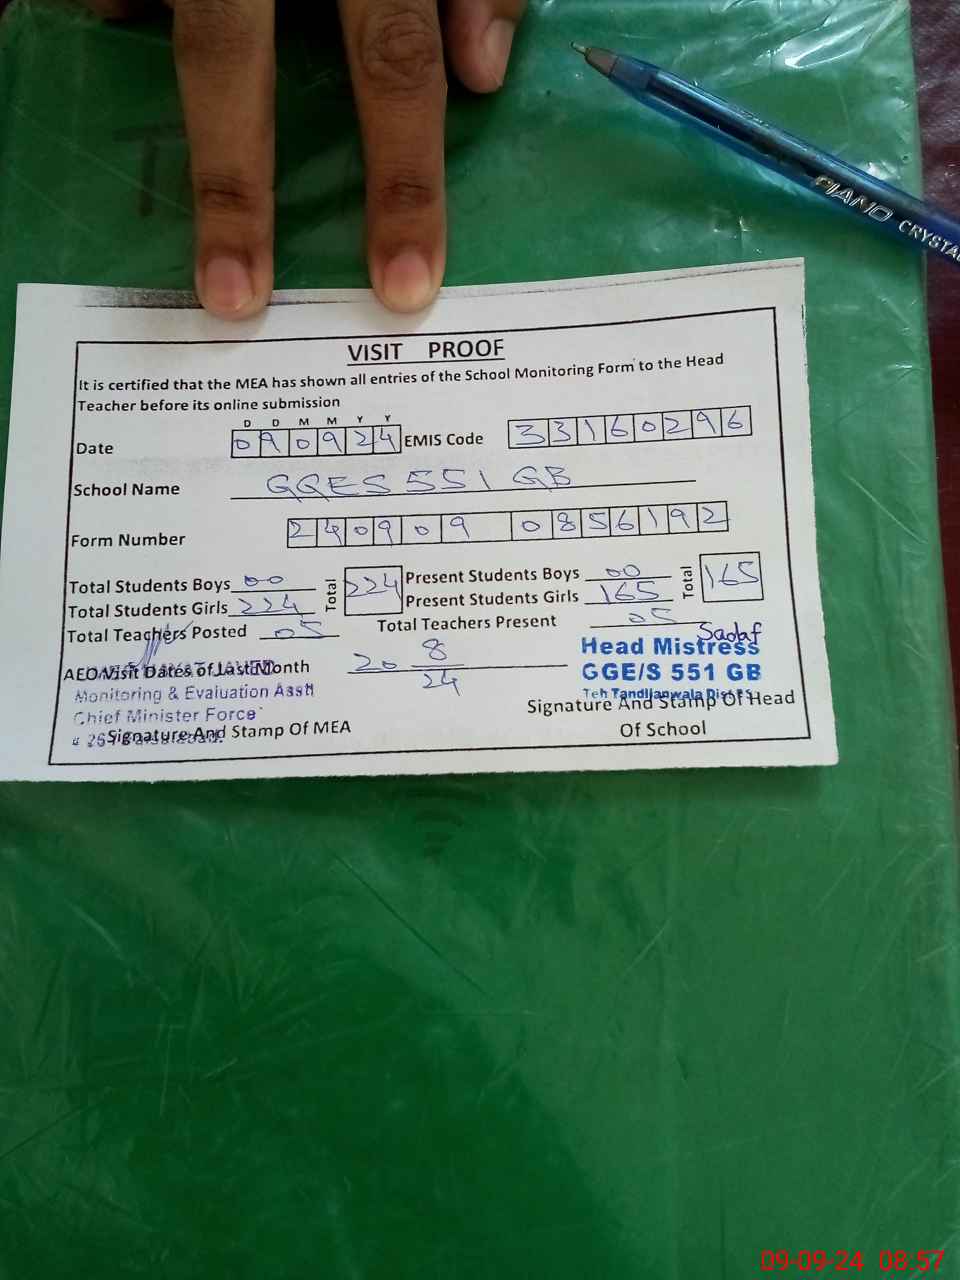 PIANO CRYSTAL
VISIT PROOF
It is certified that the MEA has shown all entries of the School Monitoring Form to the Head
Teacher before its online submission
D D M M Y Y
Date 090924 EMIS Code 33160296
School Name GGES 551 GB
Form Number 240909 0856192
Total Students Boys 00 Total 224 Present Students Boys 00 Total 165
Total Students Girls 224 Present Students Girls 165
Total Teachers Posted 05 Total Teachers Present 05
Sadaf
AEO Visit Dates of Last Month 20 8/24
Head Mistress
GGE/S 551 GB
Teh Tandlianwala Dist
Monitoring & Evaluation Asstt
Chief Minister Force
Signature And Stamp Of MEA
Signature And Stamp Of Head
Of School
09-09-24 08:57